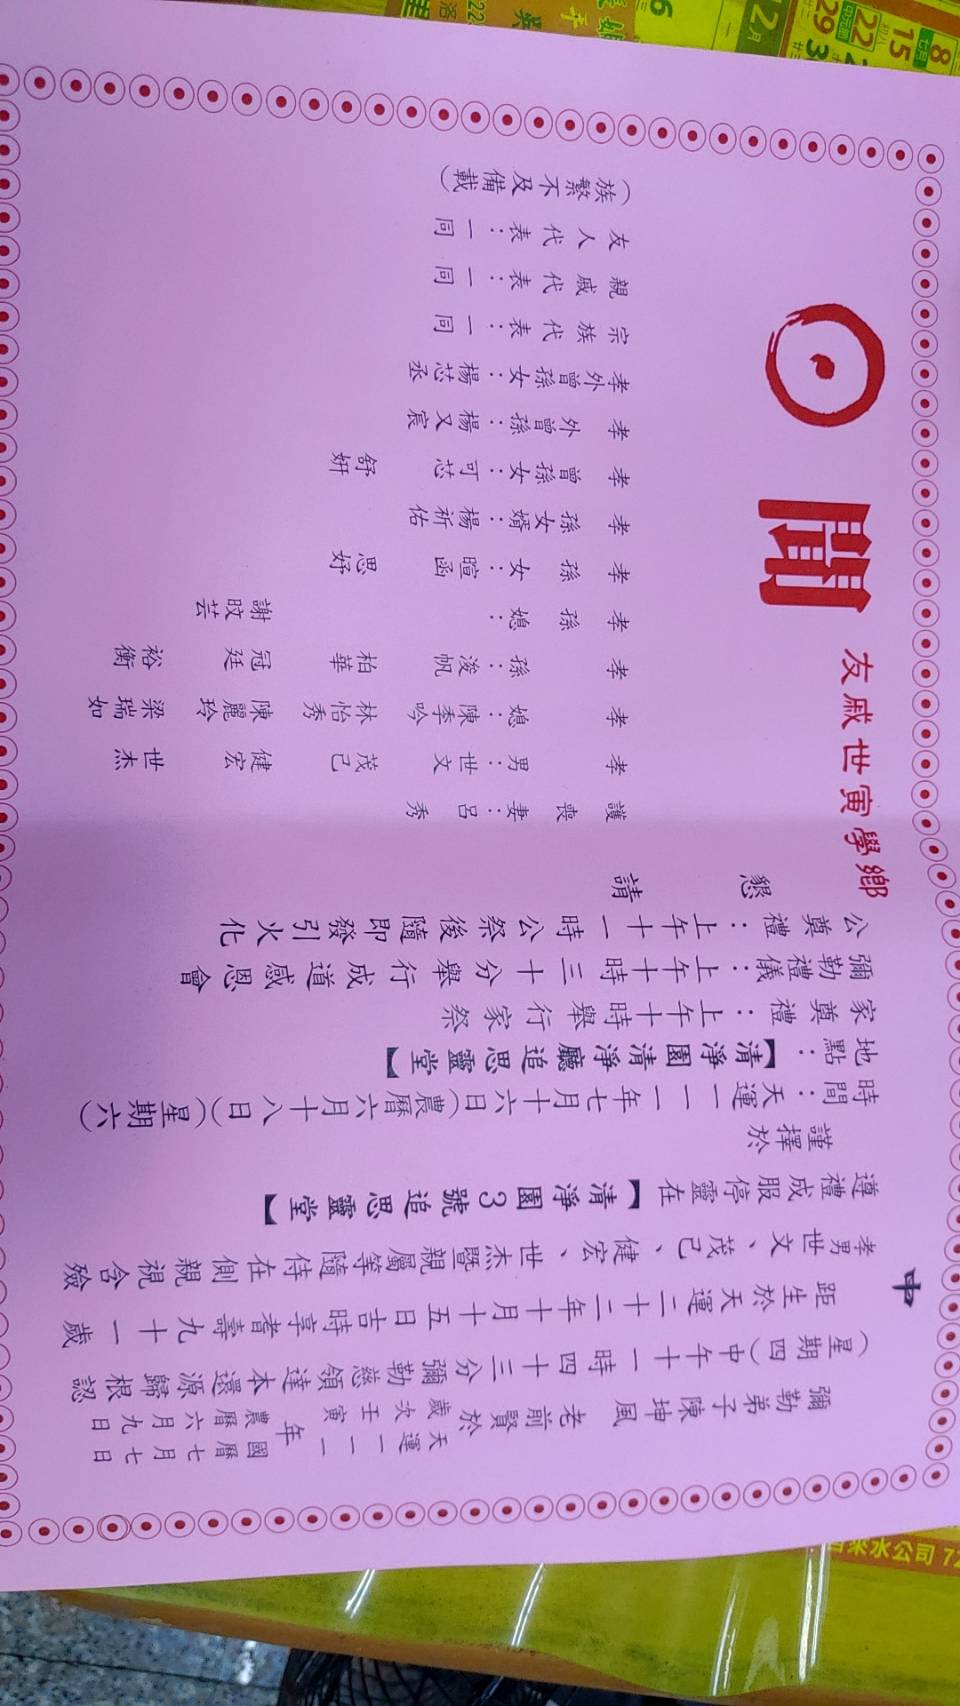 中
彌勒弟子陳坤風老前賢於
天運一一一
歲次壬寅
年
國曆七月七日
農曆六月九日
(星期四)中午十一時四十三分彌勒慈領達本還源歸根認
距生於天運二十二年十月十五日吉時享耆壽九十一歲
孝男世文、茂己、健宏、世杰暨親屬等隨侍在側親視含殮
遵禮成服停靈在【清淨園3號追思靈堂】
謹擇於
時間：天運一一一年七月十六日(農曆六月十八日)(星期六)
地點：【清淨園清淨廳追思靈堂】
家奠禮：上午十時舉行家祭
彌勒禮儀：上午十時三十分舉行成道感恩會
公奠禮：上午十一時公祭後隨即發引火化
懇請
鄉學寅世戚友
聞
護喪妻：呂秀
孝男：世文 茂己 健宏 世杰
孝媳：陳季吟 林怡秀 陳麗玲 梁瑞如
孝孫：浚帆 柏華 冠廷 裕衡
孝孫媳：謝旼芸
孝孫女：暄函 思妤
孝孫女婿：楊祈佑
孝曾孫女：可芯 舒妍
孝外曾孫：楊又宸
孝外曾孫女：楊芯丞
宗族代表：一同
親戚代表：一同
友人代表：一同
(族繁不及備載)
水公司 72
12月
8
15
22
29